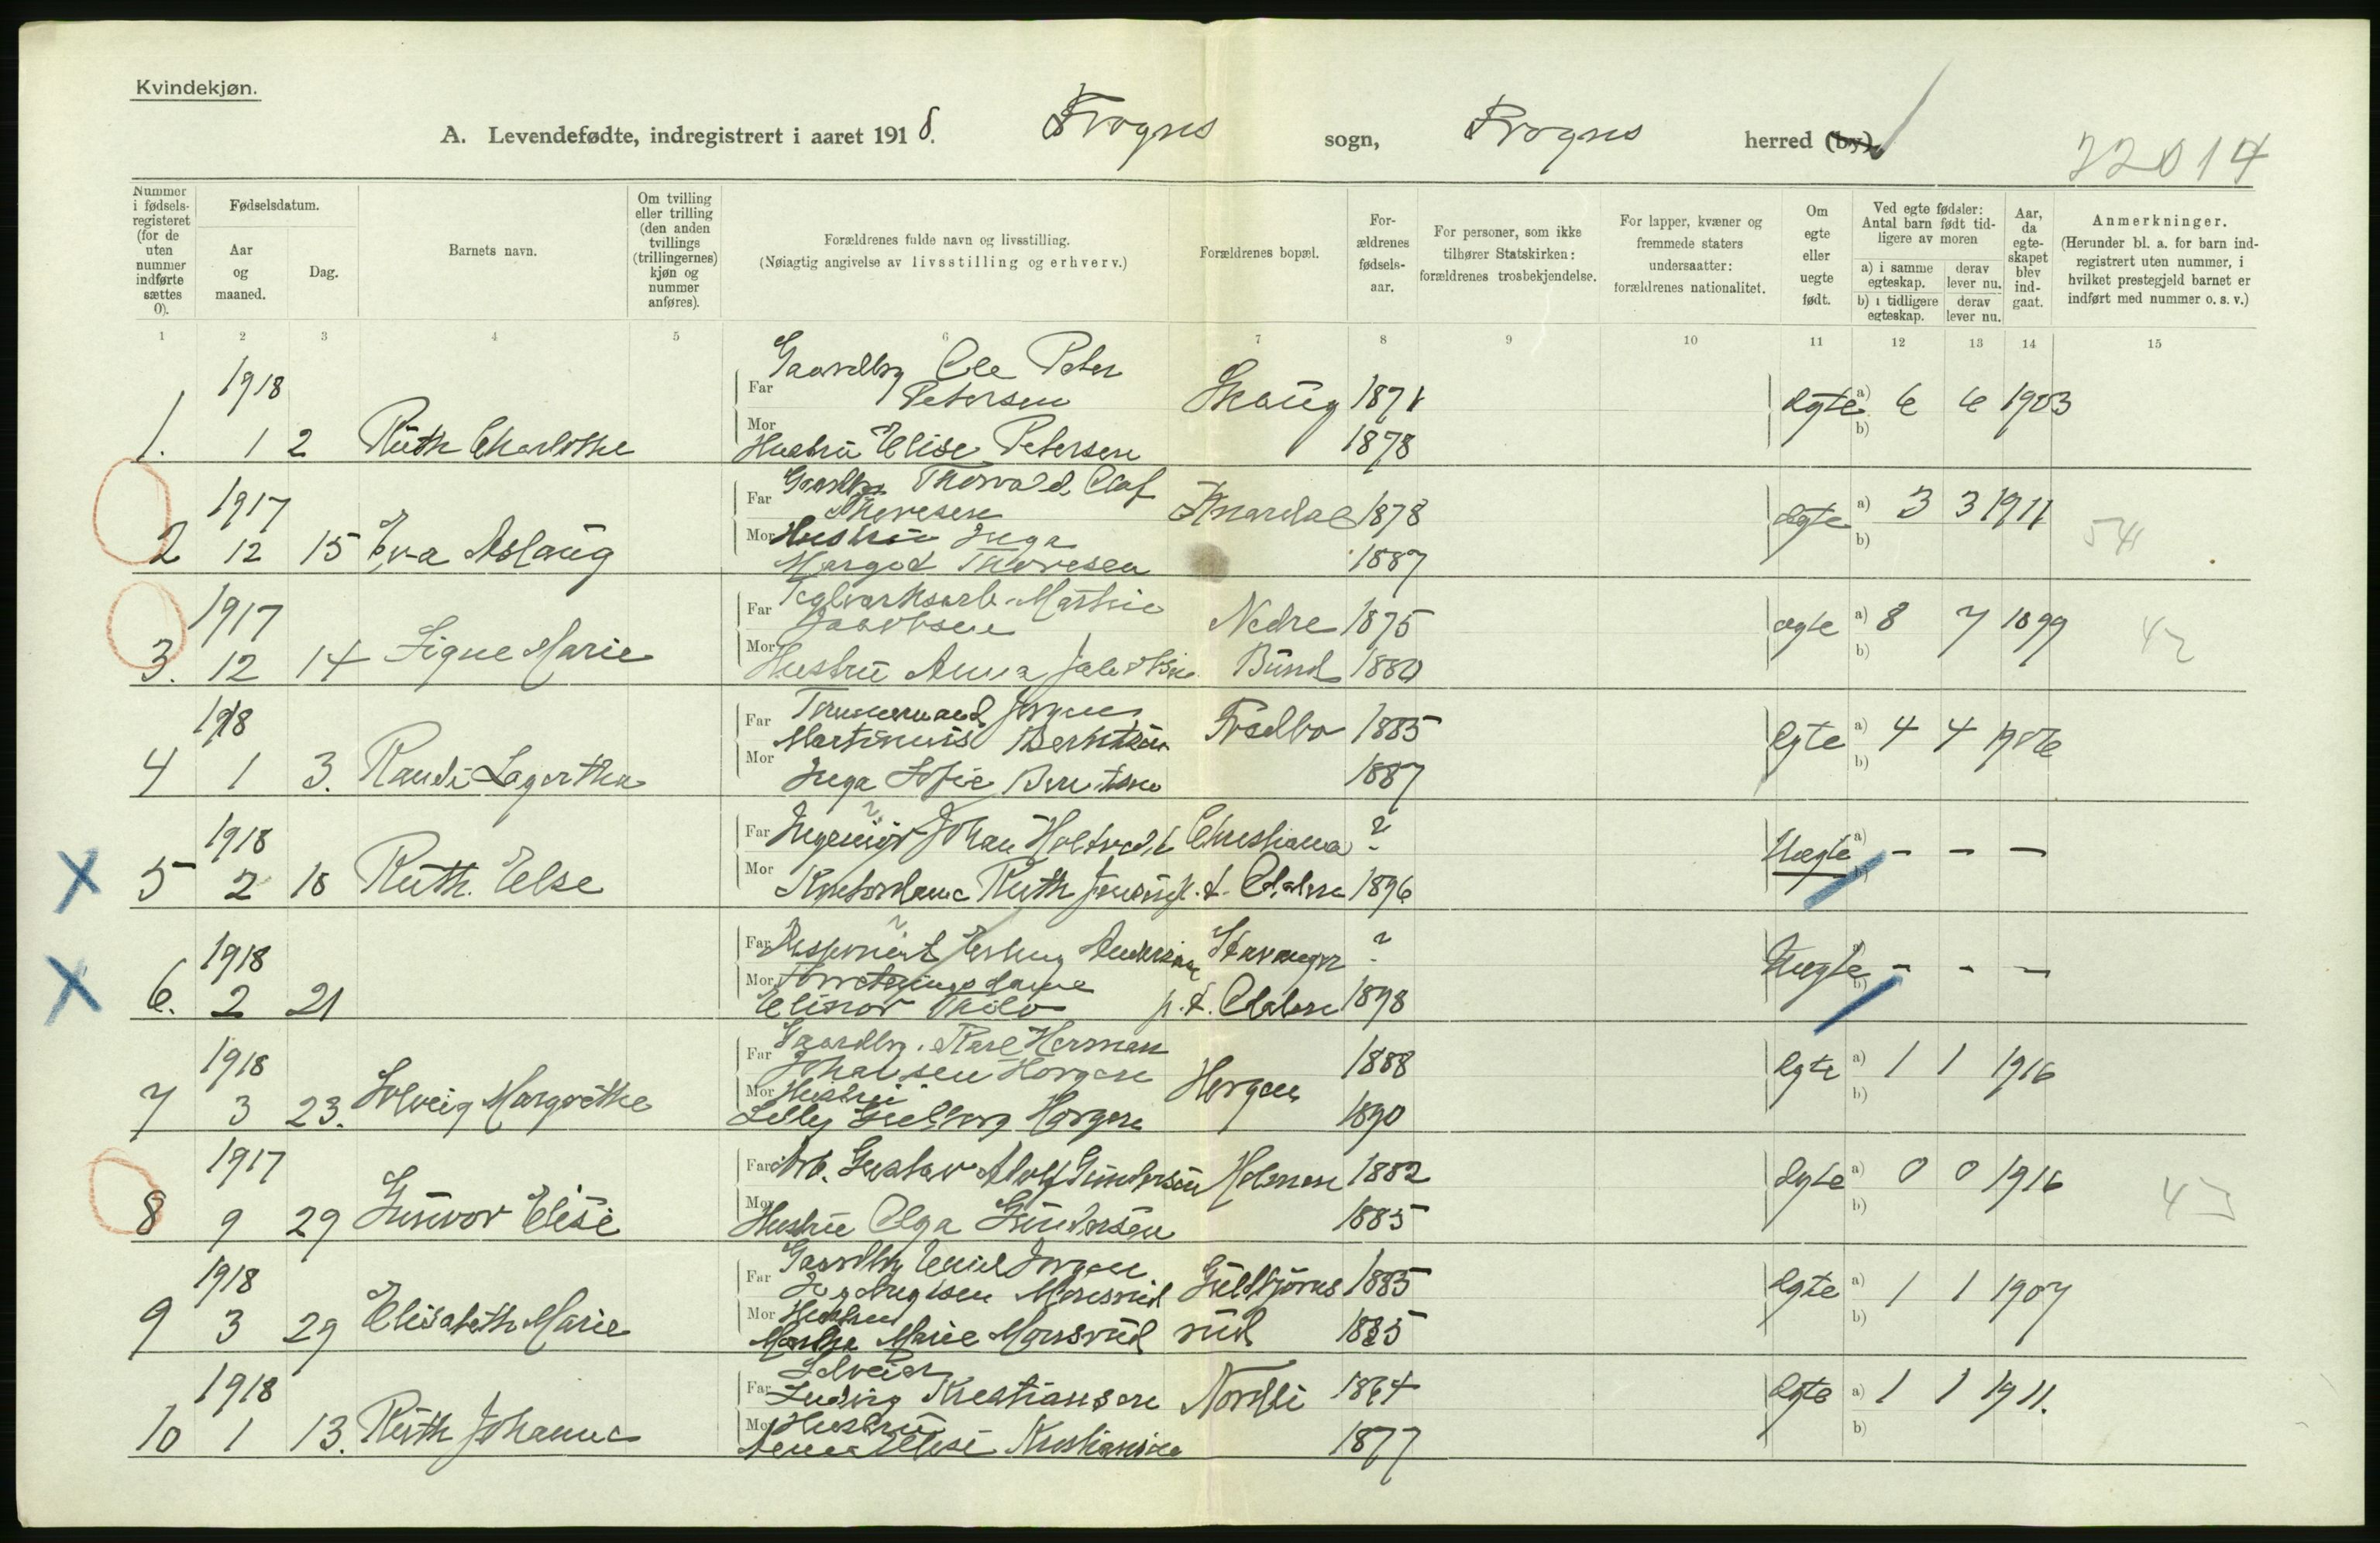 Kvindekjøn.
A. Levendefødte, indregistrert i aaret 1918. Frogns sogn, Frogns herred (by)
22014
Nummer i fødsels-registeret (for de uten nummer indførte sættes 0).
Fødselsdatum.
Aar og maaned.
Dag.
Barnets navn.
Om tvilling eller trilling (den anden tvillings (trillingernes) kjøn og nummer anføres).
Forældrenes fulde navn og livsstilling.
(Nøiagtig angivelse av livsstilling og erhverv.)
Forældrenes bopæl.
For-ældrenes fødsels-aar.
For personer, som ikke tilhører Statskirken: forældrenes trosbekjendelse.
For lapper, kvæner og fremmede staters undersaatter: forældrenes nationalitet.
Om egte eller uegte født.
Ved egte fødsler: Antal barn født tid-ligere av moren
a) i samme egteskap.
derav lever nu.
b) i tidligere egteskap.
derav lever nu.
Aar, da egte-skapet blev ind-gaat.
Anmerkninger.
(Herunder bl. a. for barn ind-registrert uten nummer, i hvilket prestegjeld barnet er indført med nummer o. s. v.)
1 2 3 4 5 6 7 8 9 10 11 12 13 14 15
1918 Far Gaardbr Ole Peter Petersen Skaug 1871 Egte a) 6 6 1903
1. 1 2 Ruth Charlotte Mor Hustru Elise Petersen 1878 b)
1917 Far Gaardbr Thorvald Olaf Thoresen 1878 Egte a) 3 3 1911
2 12 15 Eva Aslaug Mor Hustru Inga Margot Thoresen 1887 b) 54
1917 Far Teglverksarb. Martin Jacobsen Nedre 1875 egte a) 8 7 1899
3. 12 14 Signe Marie Mor Hustru Anna Jakobsen Bund 1880 b) 42
1918 Far Tømmermand Jørgen Martinius Berntsen 1885 Egte a) 4 4 1906
4 1 3. Randi Lagertha Mor Inga Sofie Berntsen 1887 b)
1918 Far Ingeniør Johan Holtvedt Christiania ? Uegte a) - - -
X 5 2 18 Ruth Else Mor Kontordame Ruth p.t. 1896
1918 Far Disponent Erling Andersen Stavanger ? Uegte a) - - -
X 6. 2 21 Mor Forretningsdame Elinor Thilo p.t. 1898
1918 Far Gaardbr. Karl Herman Johansen Horgen Horgen 1888 Egte a) 1 1 1916
7 3 23. Solveig Margrethe Mor Hustru Lilly Horgen 1890 b)
1917 Far Arb. Gustav Adolf Gundersen Holmen 1882 Egte a) 0 0 1916
8 9 29 Gunvor Elise Mor Hustru Olga Gundersen 1885 b) 43
1918 Far Gaardbr Emil Jørgen 1885 Egte a) 1 1 1907
9 3 29 Elisabeth Marie Mor Hustru Martha Marie rud 1885 b)
1918 Far Ludvig Kristiansen Nordli 1864 Egte a) 1 1 1911.
10 1 13. Ruth Johanne Mor Hustru Anna Elise Kristiansen 1877 b)